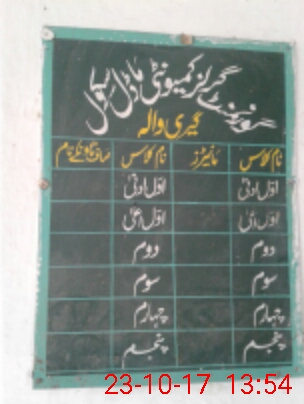 گورنمنٹ گرلز کمیونٹی ماڈل سکول
گیری والہ
نام کلاس مانیٹرز نام کلاس
اوّل ادنیٰ اوّل ادنیٰ
اوّل اعلیٰ اوّل اعلیٰ
دوم دوم
سوم سوم
چہارم چہارم
پنجم پنجم
23-10-17 13:54